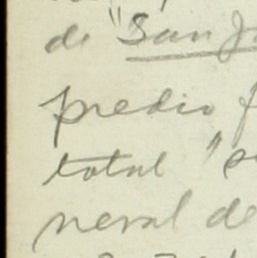 de "San J
predio f
total "s
neral de